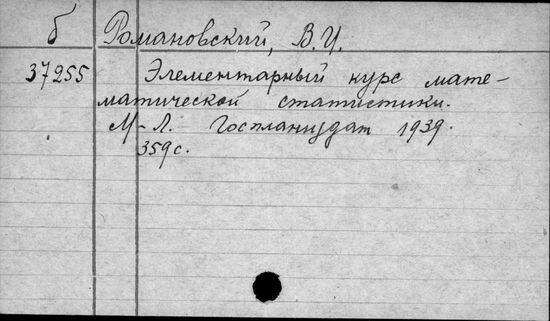 б Романовский, В.И.
37255 Элементарный курс мате-
матической статистики.
М-Л. Госпланиздат 1939.
359с.